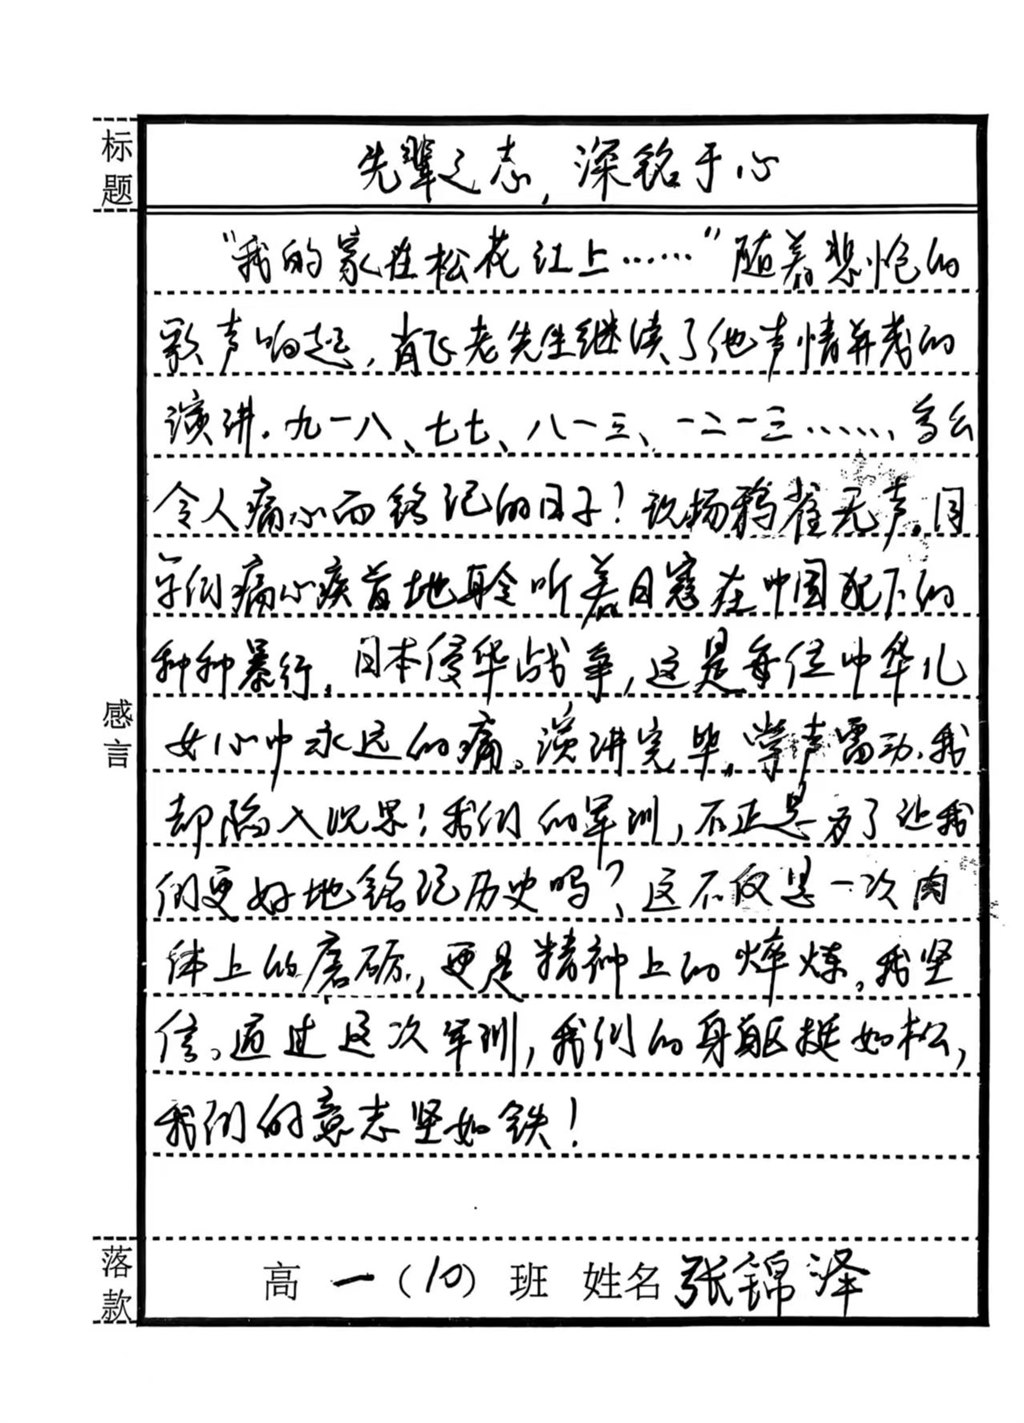 标题
先辈之志，深铭于心
“我的家在松花江上……”随着悲怆的
歌声响起，肖飞老先生继续了他声情并茂的
演讲。九一八、七七、八一三、一二一三……，多么
令人痛心而铭记的日子！现场鸦雀无声。同
学们痛心疾首地聆听着日寇在中国犯下的
种种暴行。日本侵华战争，这是每位中华儿
女心中永远的痛。演讲完毕。掌声雷动。我
却陷入沉思！我们的军训，不正是为了让我
们更好地铭记历史吗？这不仅是一次肉
体上的磨砺，更是精神上的焠炼。我坚
信。通过这次军训，我们的身躯挺如松，
我们的意志坚如铁！
感言
落款
高一（10）班 姓名 张锦泽